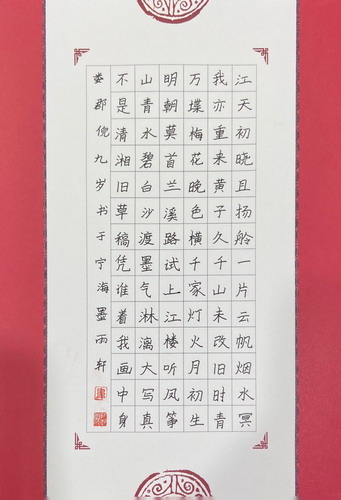 江天初晓且扬舲一片云帆烟水冥
我亦重来黄子久千山未改旧时青
万堞梅花晚色横千家灯火月初生
明朝莫首兰溪路试上江楼听风筝
山青水碧白沙渡墨气淋漓大写真
不是清湘旧草稿凭谁着我画中身
娄郡倪九岁书于宁海墨雨轩